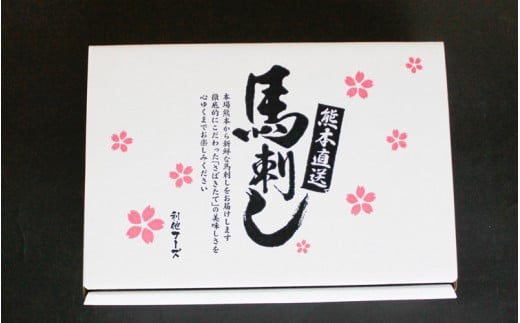 熊本直送
馬刺し
本場熊本から新鮮な馬刺しをお届けします
徹底的にこだわった「さばきたて」の美味しさを
心ゆくまでお楽しみください
利他フーズ